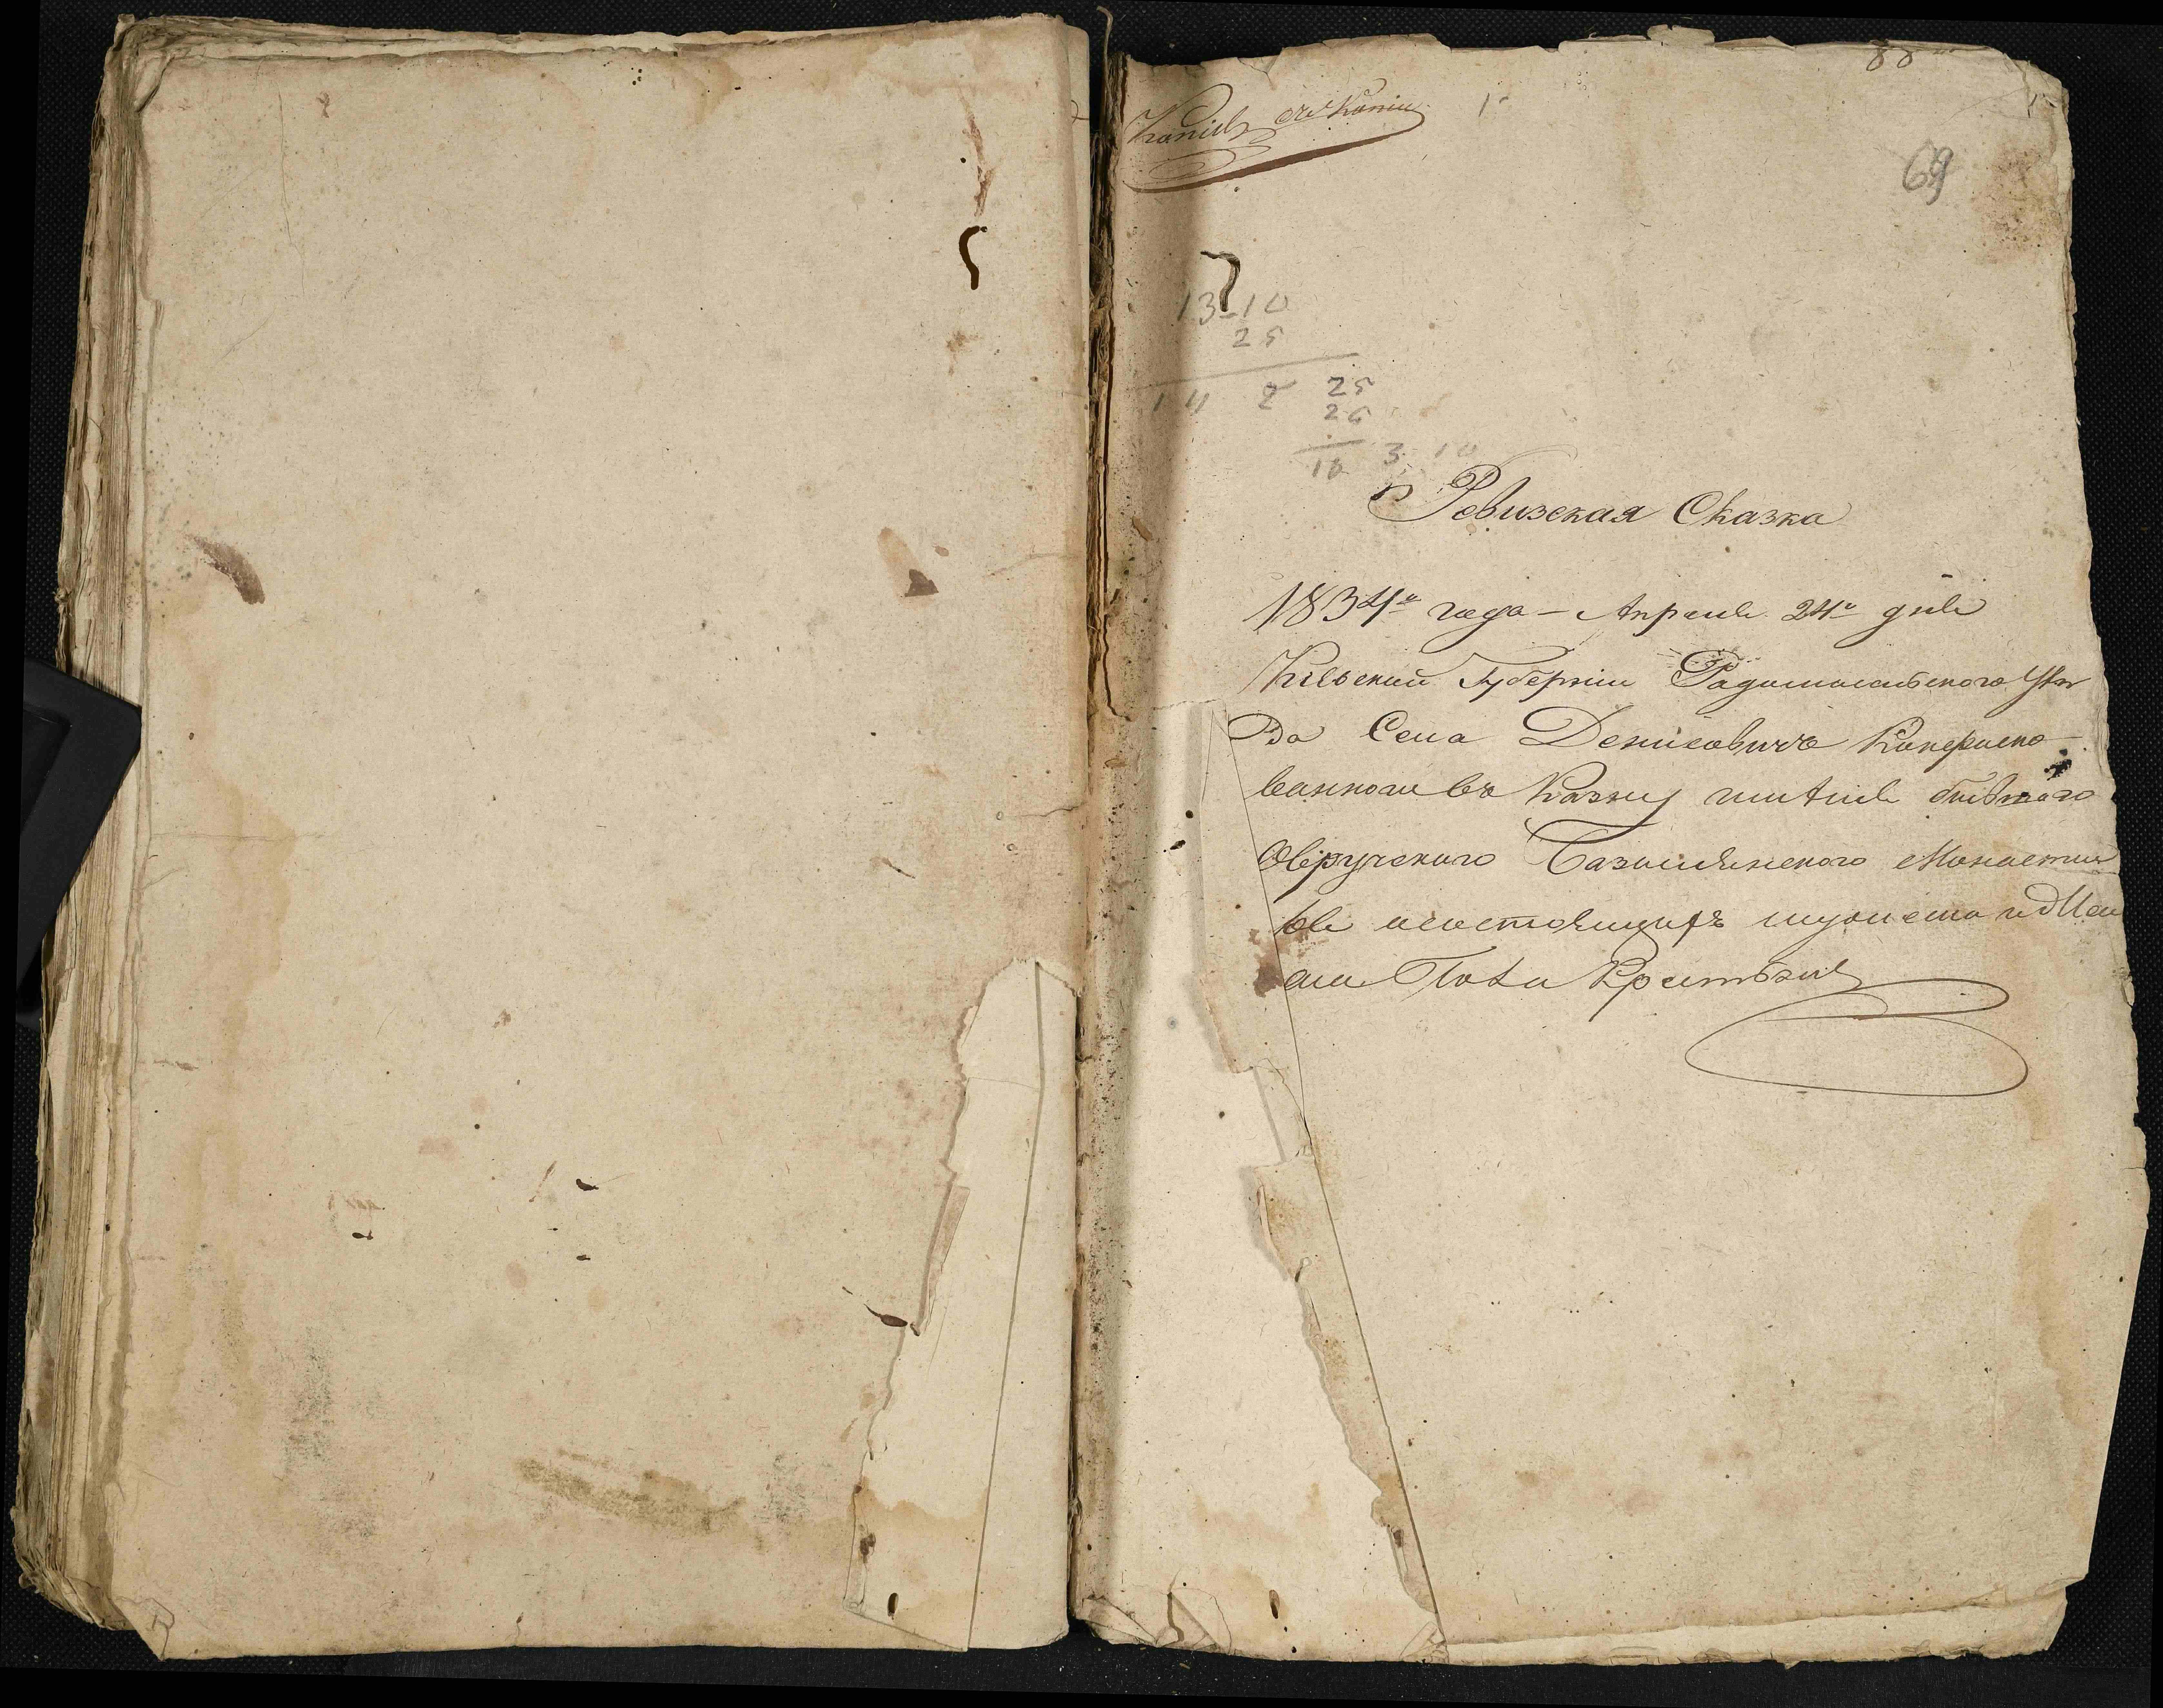 Копія съ Копіи
1
88
69
13-10
25
14 2 25
26
3 10
Ревизская Сказка
1834го года - Апреля 24го дня
Кіевской Губерніи Радомысльского Уѣз
да Села Денисовичъ Конфиско
ваннаго въ Казну имѣнія бывшаго
Овручскаго Базиліянскаго Монасты
ря
мужеска и
ска Пола Крестьянъ